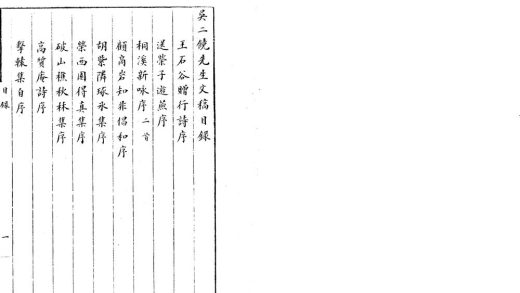 吳二饒先生文稿目錄
王石谷贈行詩序
送榮子遊燕序
桐溪新咏序二首
顧高岩知非倡和序
胡紫隣琢氷集序
榮西園得真集序
破山樵秋林集序
高質庵詩序
擊轅集自序
目錄
一